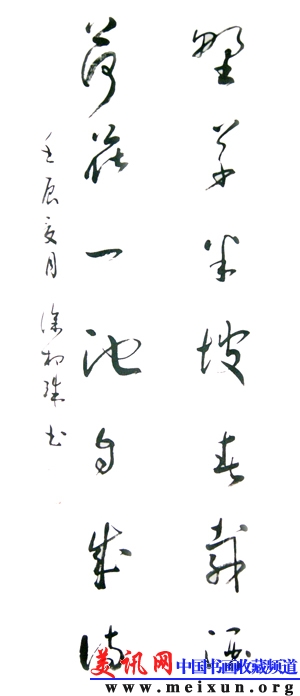 野草半坡春載酒
荷花一池自成詩
壬辰夏月 徐相珠书
美讯网 中国书画收藏频道
www.meixun.org